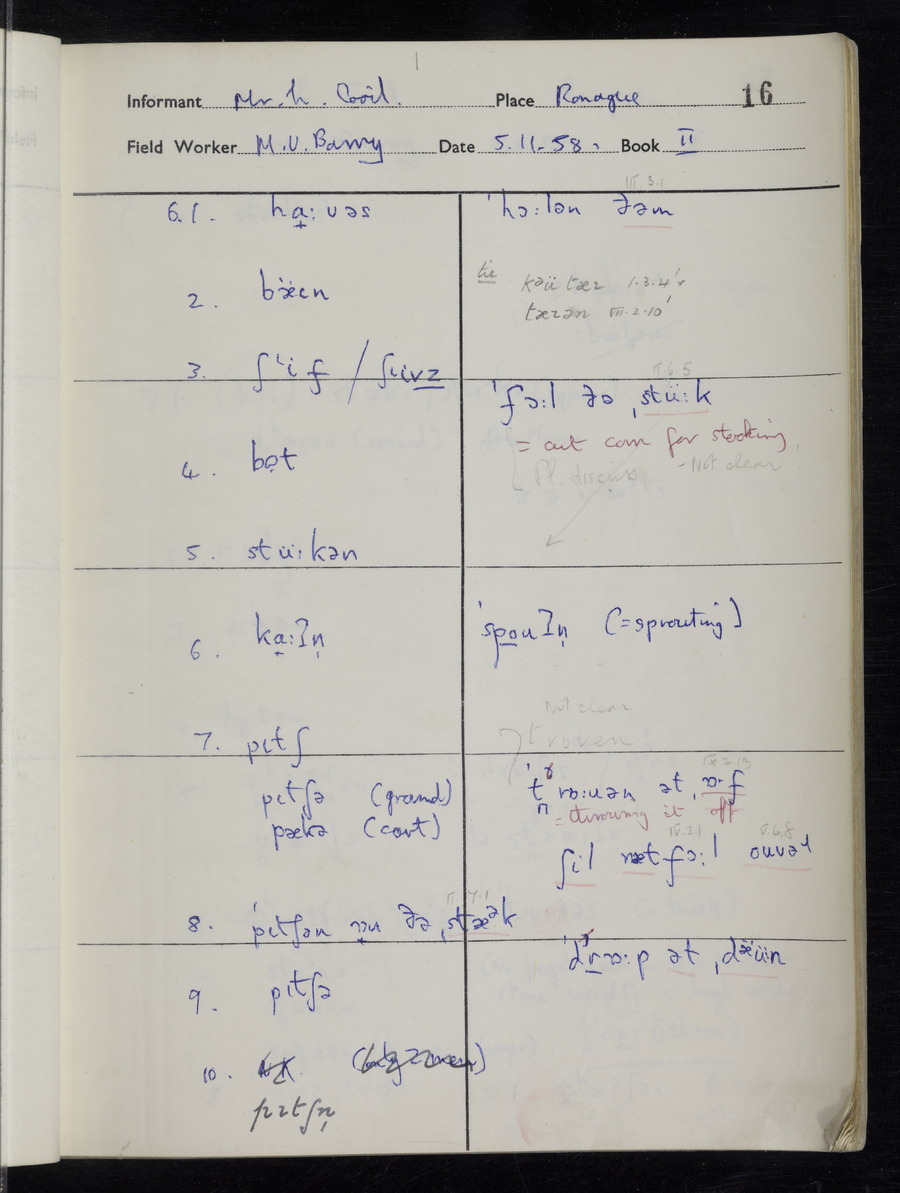 Informant Mr. h. Cooil. Place Ronague 16
Field Worker M.V. Barry Date 5.11.58. Book II
6.1. ha̟:vəs
2. bæ̈ɛn
3. ʃʽif / ʃɩivz
4. bət
5. stü:kən
6. ka:ʔn̩
7. pɩtʃ
pɩtʃə (grand)
pækə (cart)
8. ˈpɩtʃən ɒn ðə ˌstæək
9. pɩtʃə
10.
pɩtʃn̩
VI.3.1
ˈhɔ:lən ðəm
tie kəü tæɪ 1.3.4'r
tæɪən VII.2.10'
II.6.5
ˈfɔ:l ðə ˌstü:k
= cut corn for stooking.
Pl. discuss - Not clear
ˈspəuʔn̩ (=sprouting)
Not clear
troven
IX.2.13
ˈtrɒ:uən ət ˌɒ·f
= throwing it off
IV.2.1 V.6.8
ʃi·l nɒt fɔ:l ouvəɹ
II.7.1
ˈdrɒ:p ət ˌdæü:n